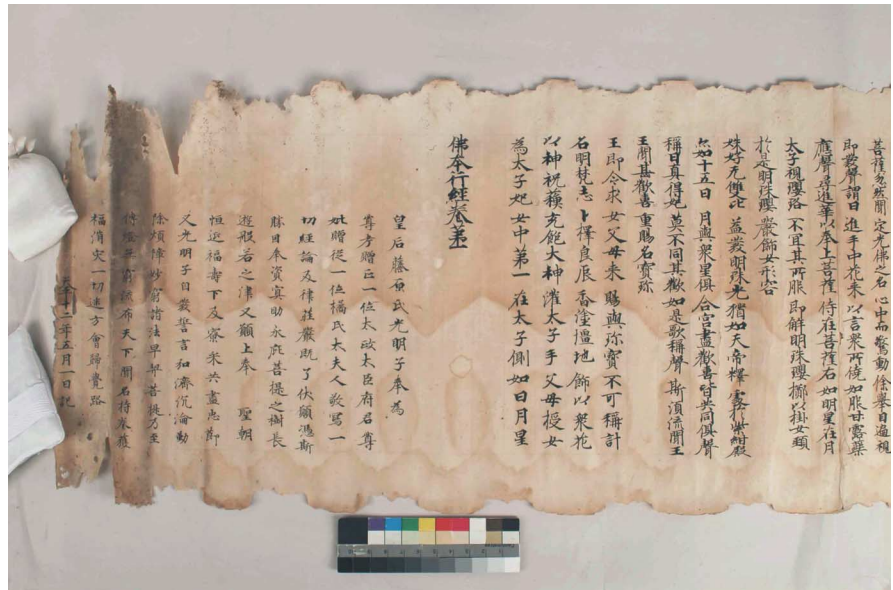 菩薩忽然聞定光佛之名心中而驚動徐舉目遍視
即發聲謂曰進手中花來以言眾所僥如服甘露藥
應聲尋進華以奉上菩薩侍在菩薩右如明星在月
太子視瓔珞不宜其所服即解明珠瓔擲以掛女頸
於是明珠瓔嚴飾女形容
姝好无雙比益發明珠光猶如天帝釋
如十五日月與眾星俱合宮盡歡喜皆共同俱聲
稱曰真得妃莫不同其歎如是歌稱聲斯須流聞王
王聞甚歡喜重賜名寶珎
王即令求女父母來賜與珎寶不可稱計
召明梵志卜擇良辰香塗壇地飾以眾花
以神祝蘋充飽大神灌太子手父母授女
為太子妃女中第一在太子側如日月星
佛本行經卷第一
皇后藤原氏光明子奉為
尊考贈正一位太政太臣府君尊
妣贈從一位橘氏太夫人敬寫一
切經論及律莊嚴既了伏願憑斯
勝因奉資冥助永庇菩提之樹長
遊般若之津又願上奉 聖朝
恒延福壽下及寮采共盡忠節
又光明子自發誓言弘濟沉淪勤
除煩障妙窮諸法早契菩提乃至
傳燈無窮流布天下聞名持卷獲
福消災一切迷方會歸覺路
天平十二年五月一日記